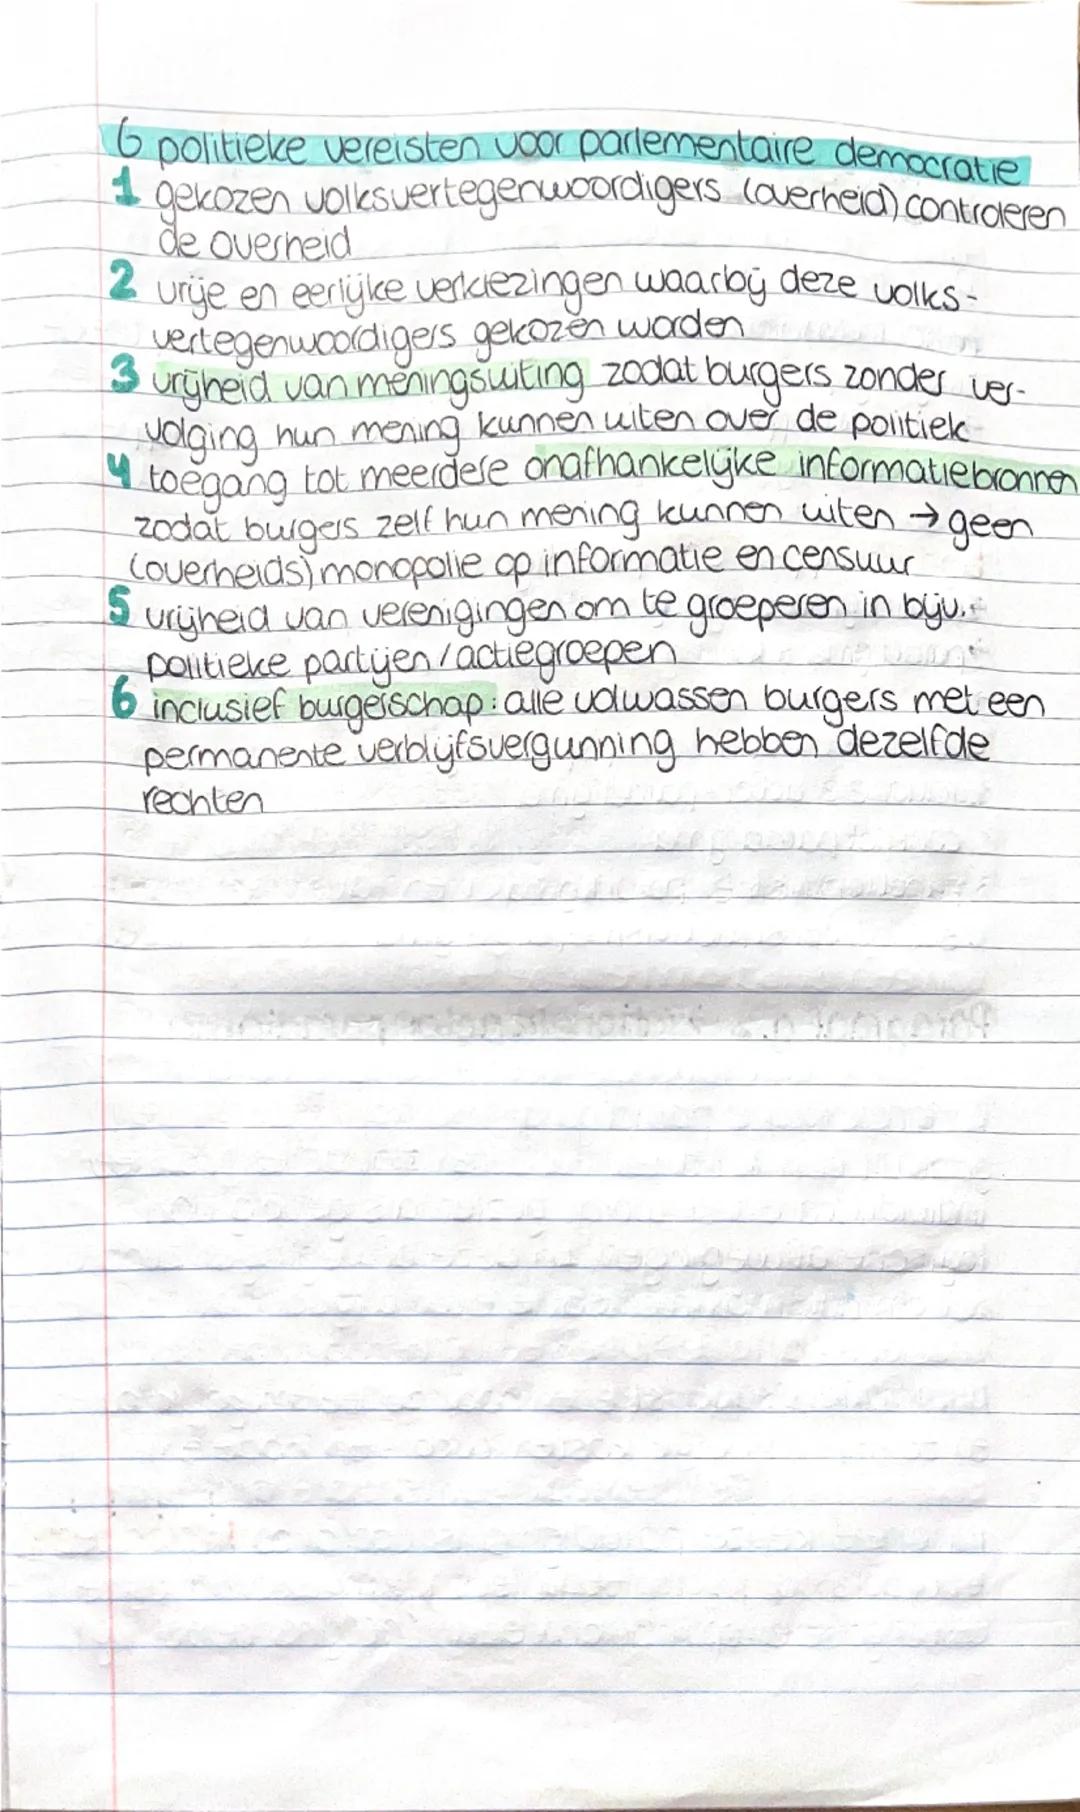 6 politieke vereisten voor parlementaire democratie
1 gekozen volksvertegenwoordigers (overheid) controleren
de overheid
2 vrije en eerlijke verkiezingen waarbij deze volks-
vertegenwoordigers gekozen worden
3 vrijheid van meningsuiting zodat burgers zonder ver-
volging hun mening kunnen uiten over de politiek
4 toegang tot meerdere onafhankelijke informatiebronnen
zodat burgers zelf hun mening kunnen uiten → geen
(overheids) monopolie op informatie en censuur
5 vrijheid van verenigingen om te groeperen in bijv.
politieke partijen/actiegroepen
6 inclusief burgerschap: alle volwassen burgers met een
permanente verblijfsvergunning hebben dezelfde
rechten